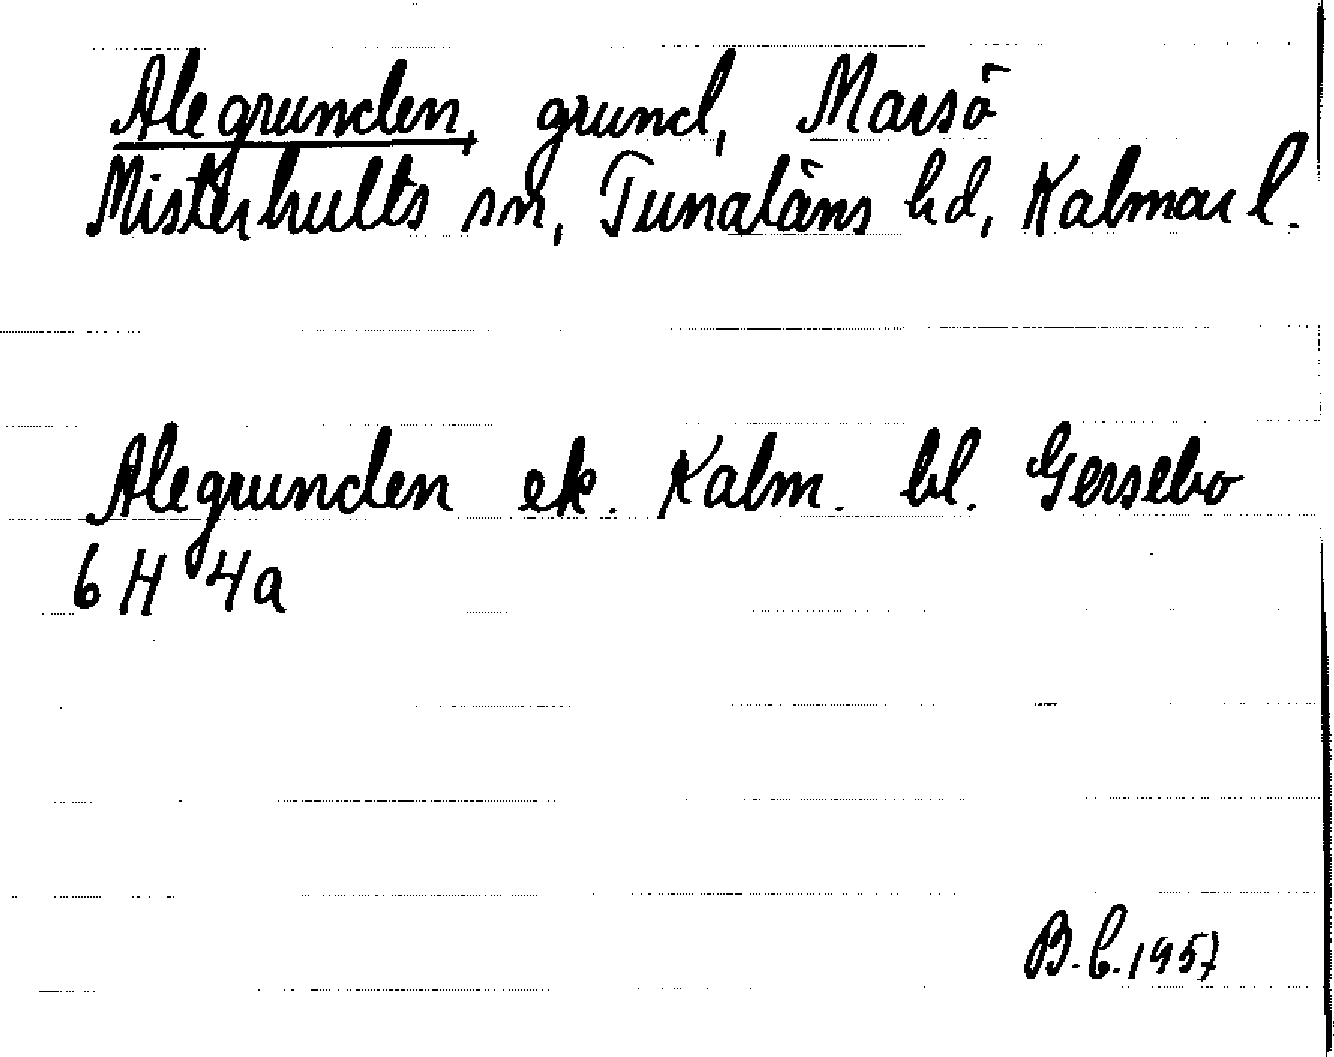 Alegrunden, grund, Marsö
Misterhults sn, Tunaläns hd, Kalmar l.
Alegrunden ek. Kalm. bl. Gersebo
6 H 4a
B.C. 1957